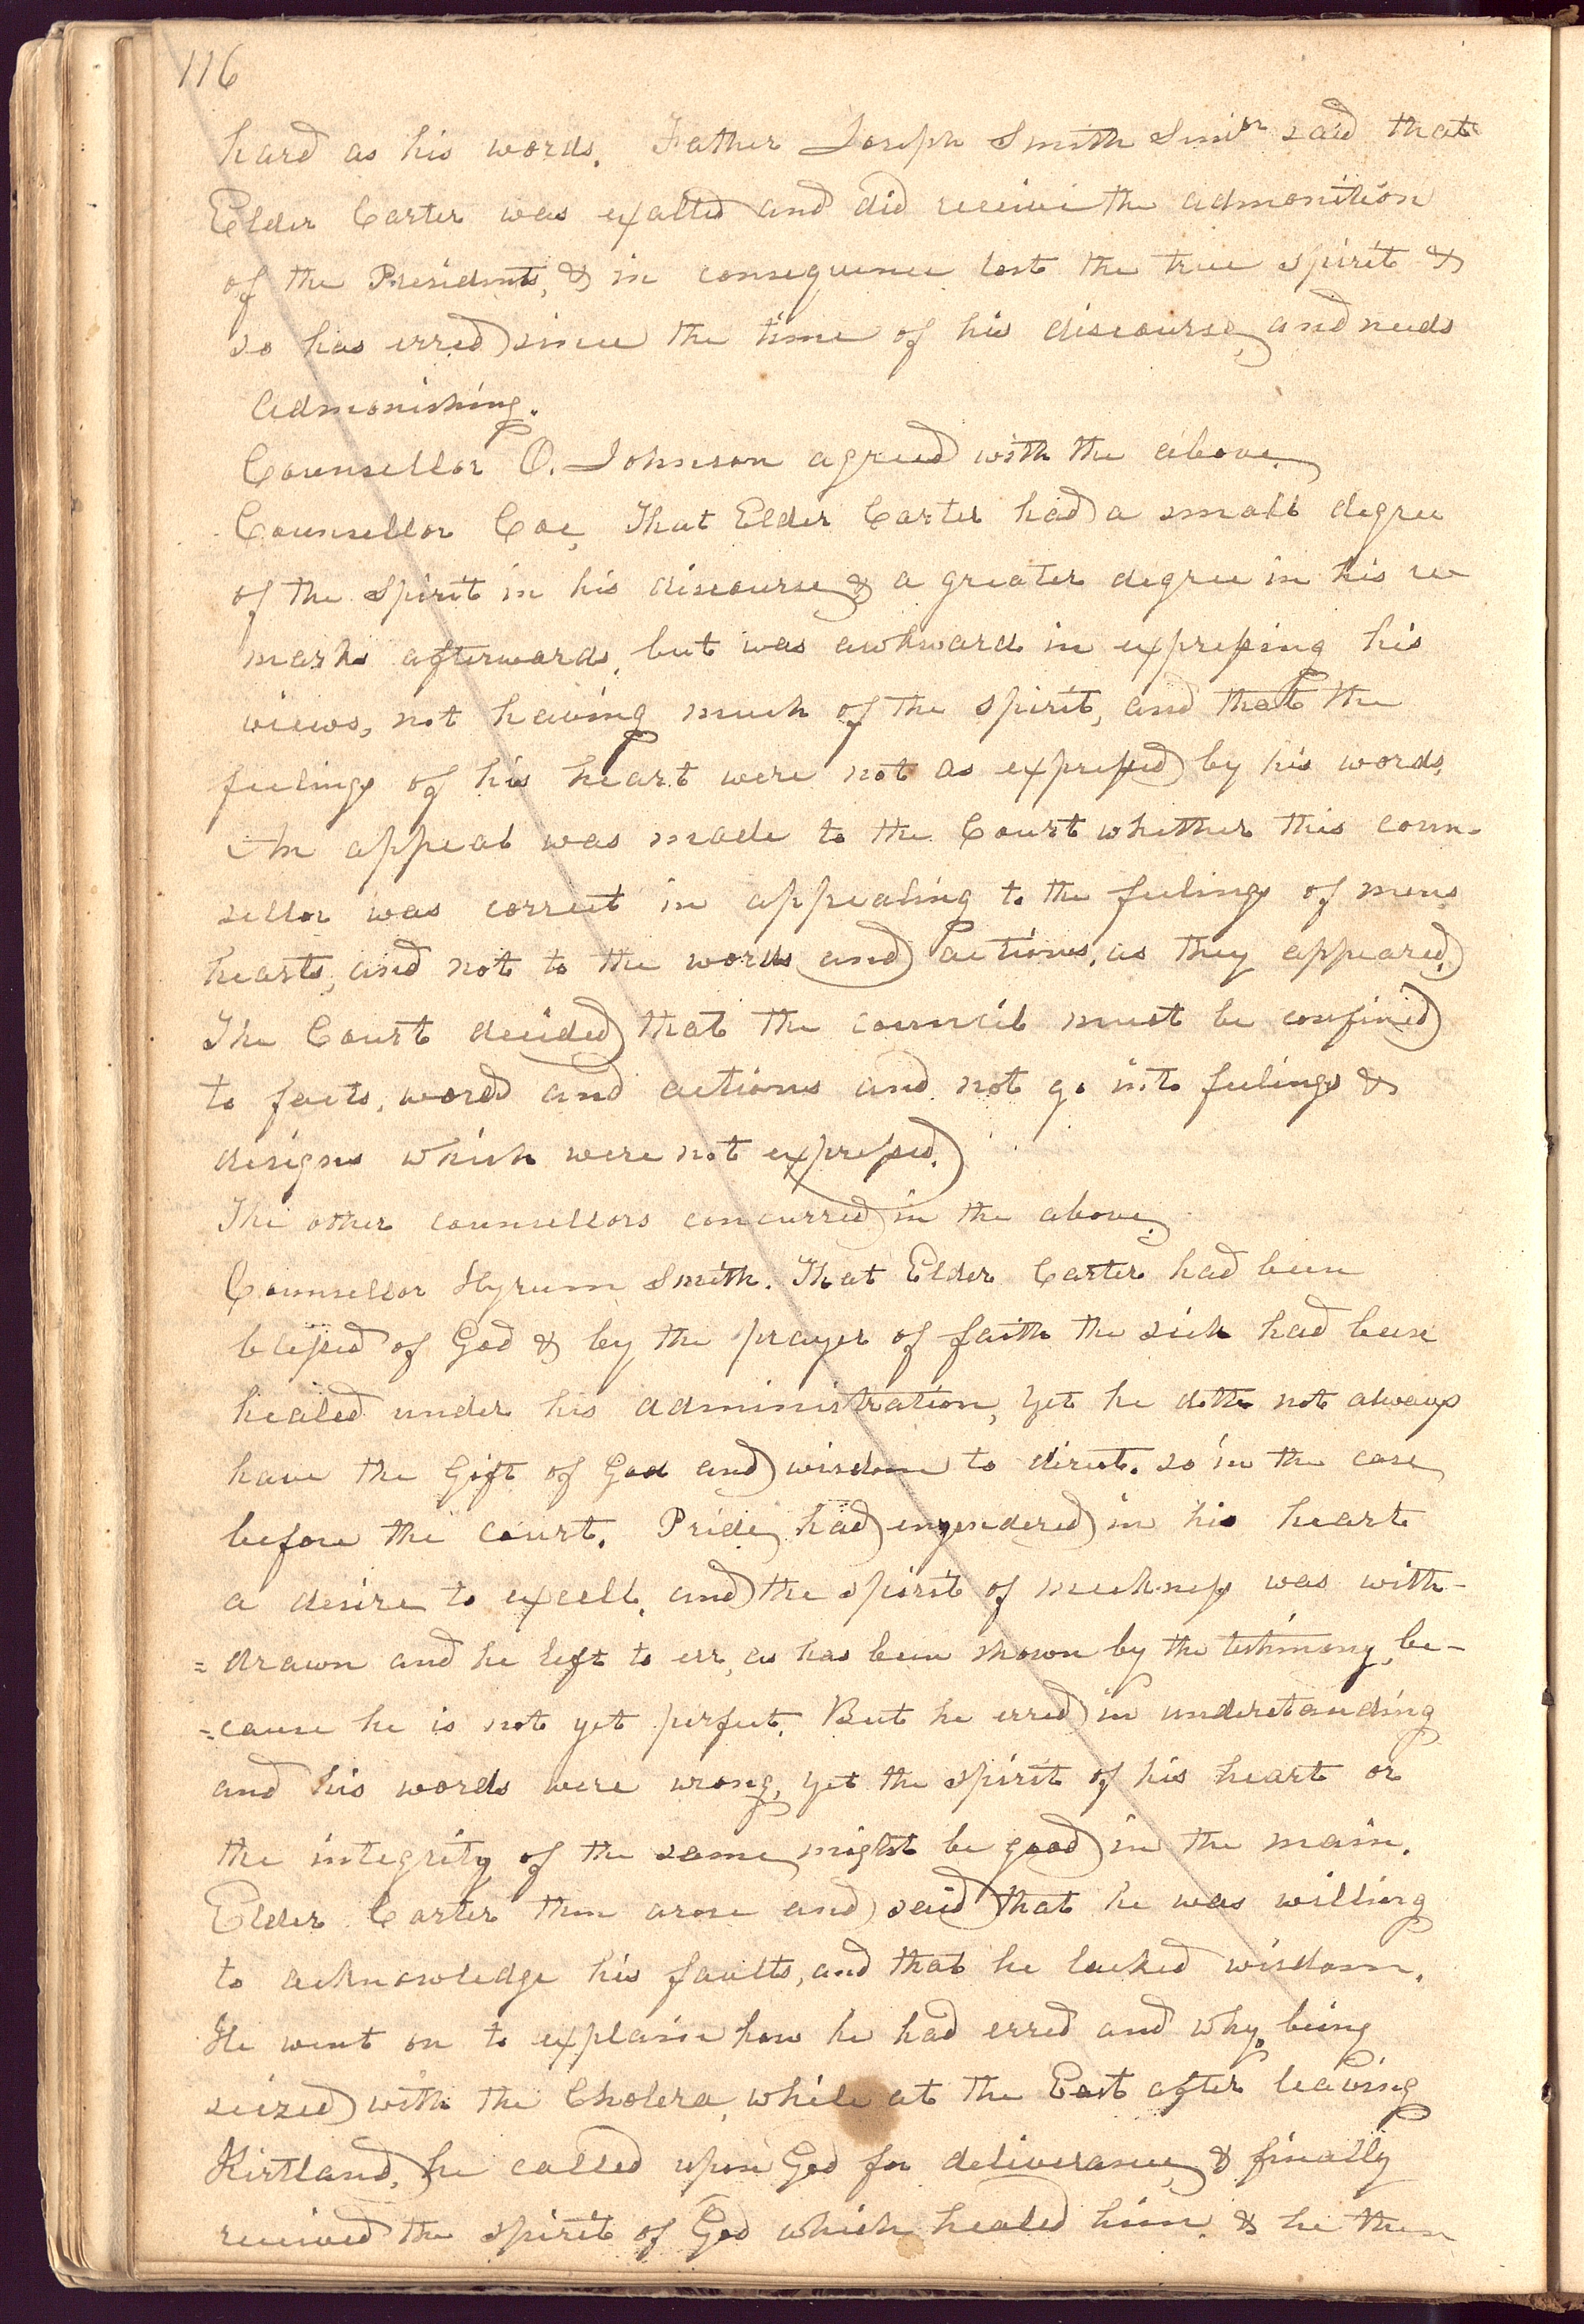 116
hard as his words. Father Joseph Smith Senior said that
Elder Carter was exalted and did receive the admonition
of the Presidents, & in consequence lost the true spirit &
so has erred since the time of his discourse, and needs
admonishing.
Counsellor O. Johnson agreed with the above.
Counsellor Coe, That Elder Carter had a small degree
of the spirit in his discourse & a greater degree in his re-
marks afterwards, but was awkward in expressing his
views, not having much of the spirit, and that the
feelings of his heart were not as expressed by his words.
An appeal was made to the Court whether this coun-
sellor was correct in appealing to the feelings of mens
hearts, and not to the words and actions, as they appeared.
The Court decided that the council must be confined
to facts, words and actions and not go into feelings &
designs which were not expressed.
The other counsellors concurred in the above.
Counsellor Hyrum Smith. That Elder Carter had been
blessed of God & by the prayer of faith the sick had been
healed under his administration, yet he doth not always
have the Gift of God and wisdom to direct. so in the case
before the court. Pride had engendered in his heart
a desire to excell, and the spirit of meekness was with-
=drawn and he left to err, as has been shown by the testimony, be-
=cause he is not yet perfect. But he erred in understanding
and his words were wrong, yet the spirit of his heart or
the integrity of the same might be good in the main.
Elder Carter then arose and said that he was willing
to acknowledge his faults, and that he lacked wisdom.
He went on to explain how he had erred and why, being
seized with the Cholera, while at the East after leaving
Kirtland, he called upon God for deliverance, & finally
received the spirit of God which healed him, & he then